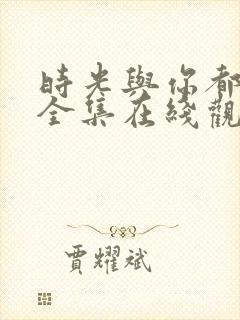 時光與你都
全集在綫觀
賈耀斌